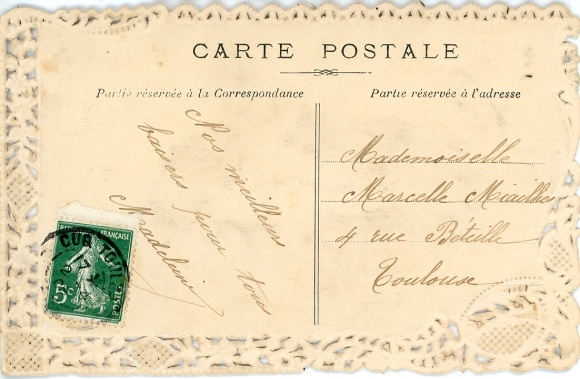 CARTE POSTALE
Partie réservée à la Correspondance
Partie réservée à l'adresse
Nos meilleurs
baisers pour tous
Madeleine
Mademoiselle
Marcelle Miailhe
4 rue Béteille
Toulouse
FRANÇAISE
5c
POSTES